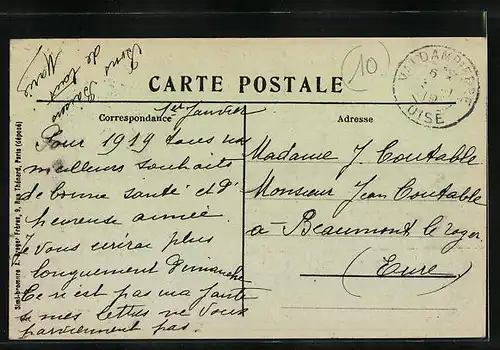 Bons
Baisers
de tous
Marie
10
VALDAMPIERRE
OISE
CARTE POSTALE
Correspondance
Adresse
1er Janvier
Pour 1919 tous nos
meilleurs souhaits
de bonne santé et d'
heureuse année.
Je vous écrirai plus
longuement Dimanche
Ce n'est pas ma faute
si mes lettres ne vous
parviennent pas
Madame J Coutable
Monsieur Jean Coutable
à Beaumont le roger
(Eure)
Frères, 9, Rue Thénard, Paris (déposé)